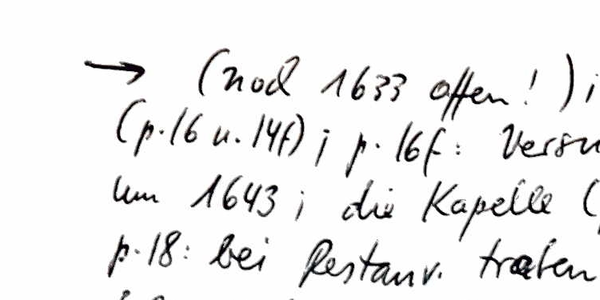 → (noch 1633 offen!) ;
(p.16 u. 14f) ; p. 16f: Versu
um 1643 ; die Kapelle (
p.18: bei Restaur. traten